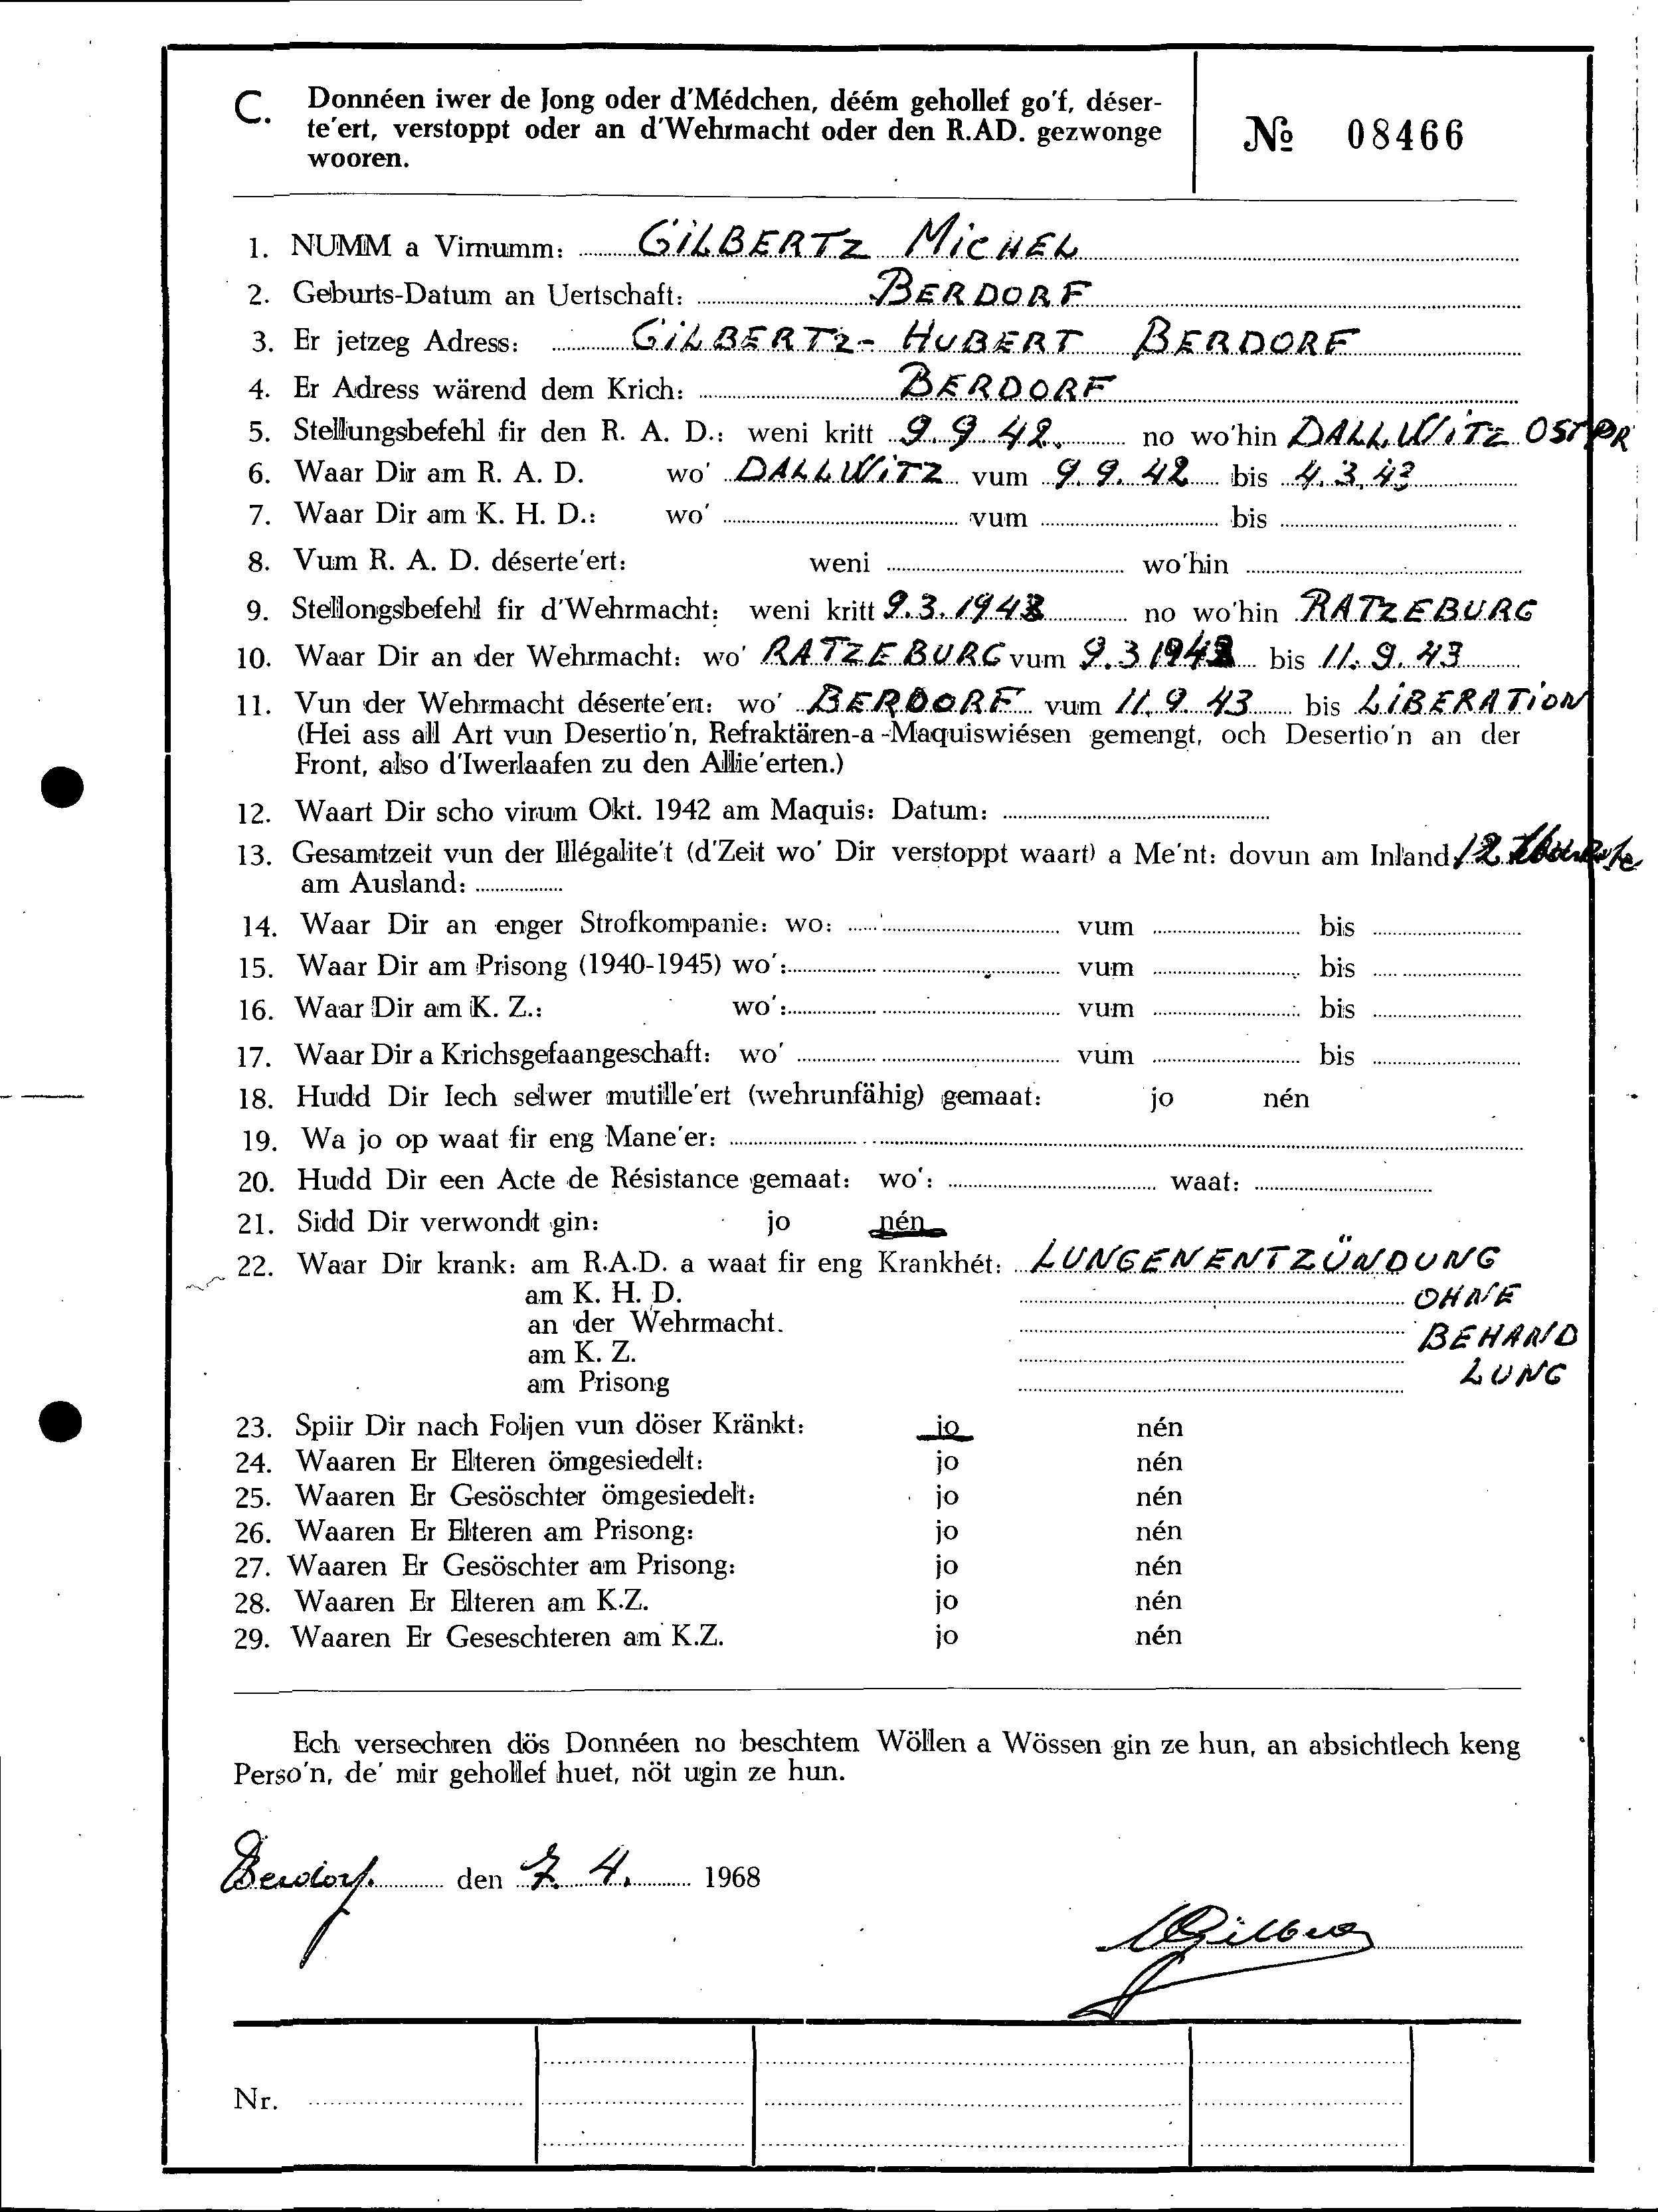 C. Donnéen iwer de Jong oder d'Médchen, déém gehollef go'f, déser-
te'ert, verstoppt oder an d'Wehrmacht oder den R.AD. gezwonge
wooren.
№ 08466
1. NUMM a Virnumm: GILBERTZ MICHEL
2. Geburts-Datum an Uertschaft: BERDORF
3. Er jetzeg Adress: GILBERTZ-HUBERT BERDORF
4. Er Adress wärend dem Krich: BERDORF
5. Stellungsbefehl fir den R. A. D.: weni kritt 9.9.42. no wo'hin DALLWITZ OSTPR
6. Waar Dir am R. A. D. wo' DALLWITZ vum 9.9.42 bis 4.3.43
7. Waar Dir am K. H. D.: wo' vum bis
8. Vum R. A. D. déserte'ert: weni wo'hin
9. Stellongsbefehl fir d'Wehrmacht: weni kritt 9.3.1943 no wo'hin RATZEBURG
10. Waar Dir an der Wehrmacht: wo' RATZEBURG vum 9.3 1943 bis 11.9.43
11. Vun der Wehrmacht déserte'ert: wo' BERDORF vum 11.9.43 bis LIBERATION
(Hei ass all Art vun Desertio'n, Refraktären-a-Maquiswiésen gemengt, och Desertio'n an der
Front, also d'Iwerlaafen zu den Allie'erten.)
12. Waart Dir scho virum Okt. 1942 am Maquis: Datum:
13. Gesamtzeit vun der Illégalite't (d'Zeit wo' Dir verstoppt waart) a Me'nt: dovun am Inland 12 Monate
am Ausland:
14. Waar Dir an enger Strofkompanie: wo: vum bis
15. Waar Dir am Prisong (1940-1945) wo': vum bis
16. Waar Dir am K. Z.: wo': vum bis
17. Waar Dir a Krichsgefaangeschaft: wo' vum bis
18. Hudd Dir Iech selwer mutille'ert (wehrunfähig) gemaat: jo nén
19. Wa jo op waat fir eng Mane'er:
20. Hudd Dir een Acte de Résistance gemaat: wo': waat:
21. Sidd Dir verwondt gin: jo nén
22. Waar Dir krank: am R.A.D. a waat fir eng Krankhét: LUNGENENTZÜNDUNG
am K. H. D. OHNE
an der Wehrmacht. BEHAND
am K. Z. LUNG
am Prisong
23. Spiir Dir nach Foljen vun döser Kränkt: jo nén
24. Waaren Er Elteren ömgesiedelt: jo nén
25. Waaren Er Gesöschter ömgesiedelt: jo nén
26. Waaren Er Elteren am Prisong: jo nén
27. Waaren Er Gesöschter am Prisong: jo nén
28. Waaren Er Elteren am K.Z. jo nén
29. Waaren Er Geseschteren am K.Z. jo nén
Ech versechren dös Donnéen no beschtem Wöllen a Wössen gin ze hun, an absichtlech keng
Perso'n, de' mir gehollef huet, nöt ugin ze hun.
Berdorf. den 7. 4. 1968
Nr.